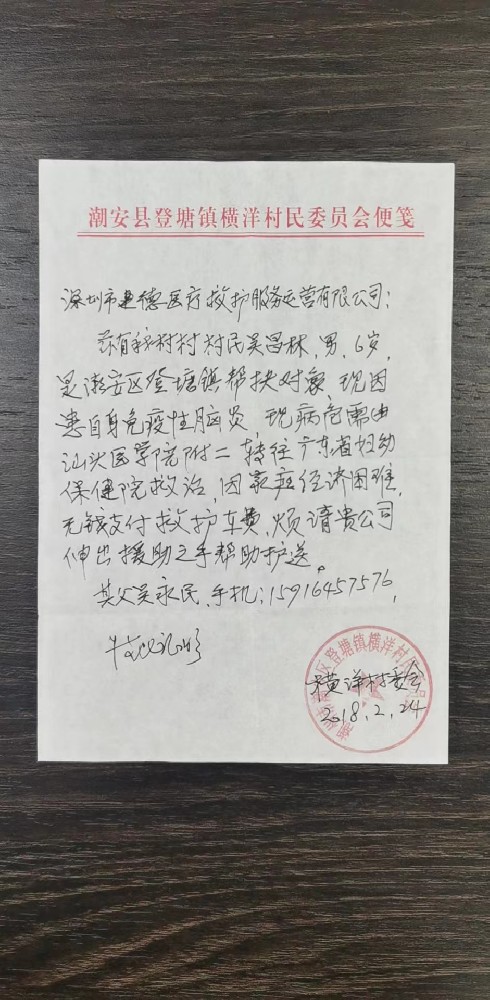 潮安县登塘镇横洋村民委员会便笺
深圳市建德医疗救护服务运营有限公司:
兹有我村村民吴昌林,男,6岁,
是潮安区登塘镇帮扶对象,现因
患自身免疫性脑炎,现病危需由
汕头医学院附二转往广东省妇幼
保健院救治,因家庭经济困难,
无钱支付救护车费,烦请贵公司
伸出援助之手帮助护送。
其父吴永民,手机:15916457576,
特此证明
横洋村委会
2018.2.24
区登塘镇横洋村